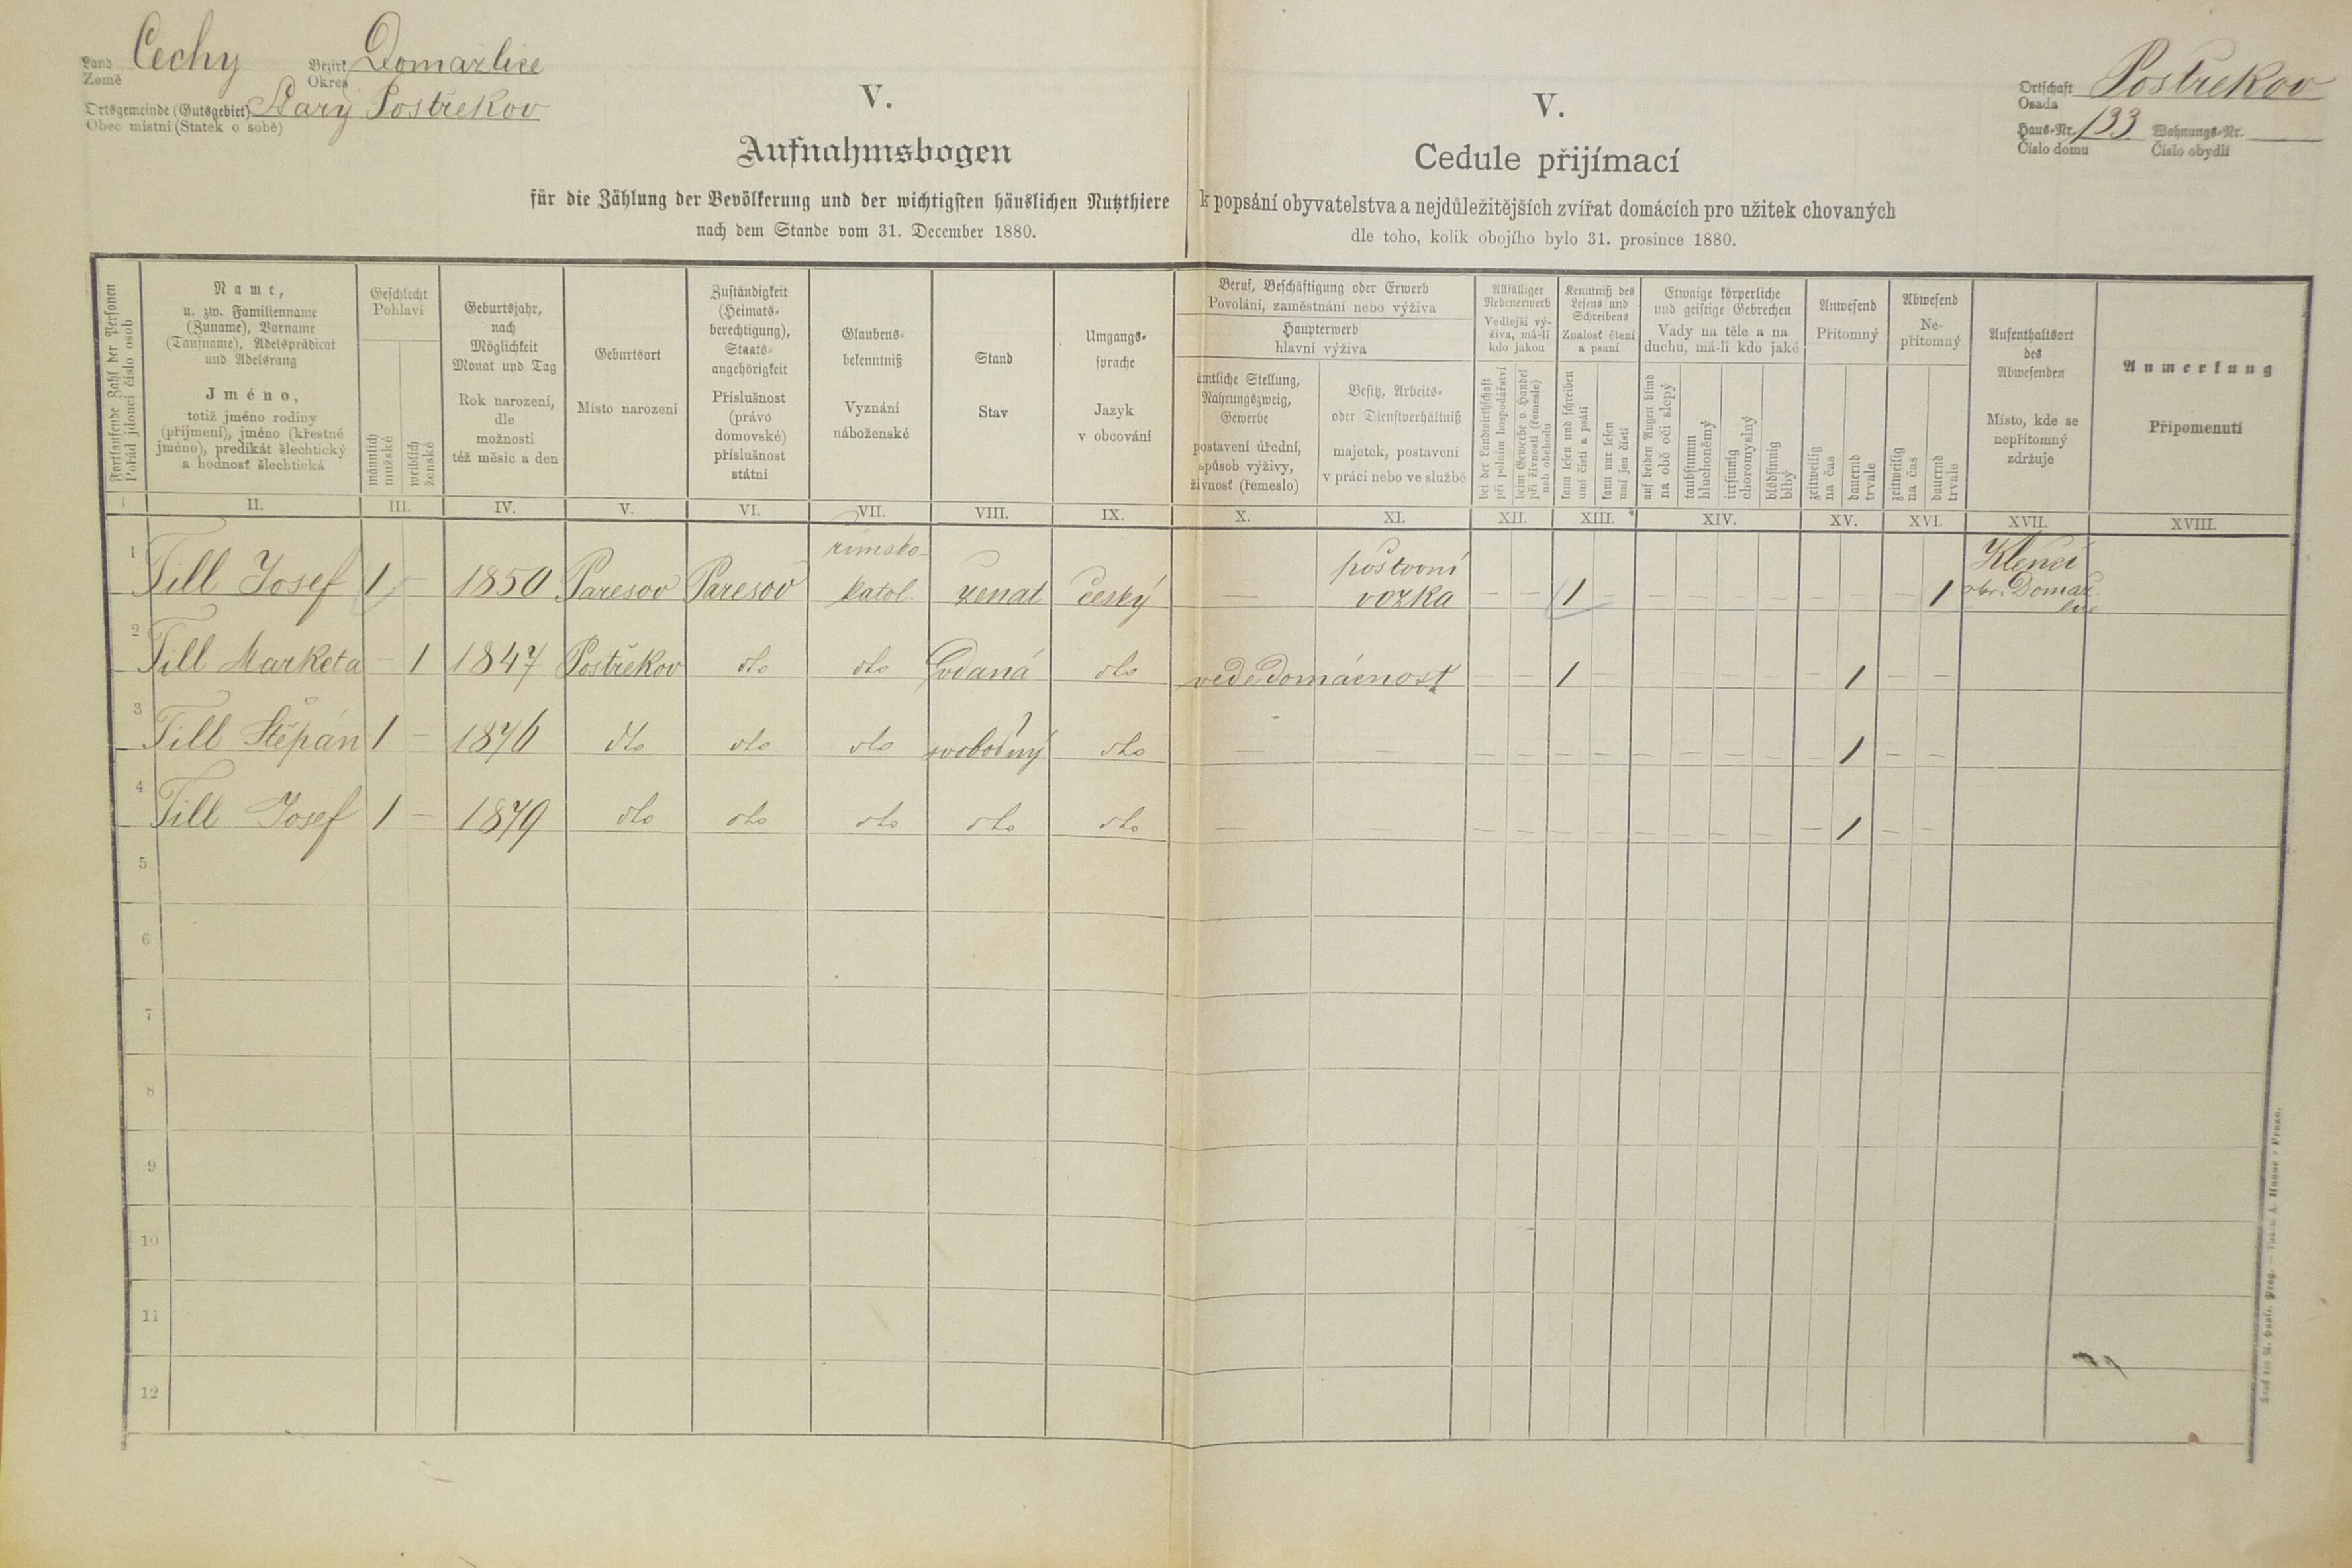 Land Čechy Bezirk Domažlice
Země Okres
Ortsgemeinde (Gutsgebiet) Starý Postřekov
Obec místní (Statek o sobě)
Ortschaft Postřekov
Osada
Haus-Nr. 133 Wohnungs-Nr.
Číslo domu Číslo obydlí
V.
Aufnahmsbogen
für die Zählung der Bevölkerung und der wichtigsten häuslichen Nutzthiere
nach dem Stande vom 31. December 1880.
V.
Cedule přijímací
k popsání obyvatelstva a nejdůležitějších zvířat domácích pro užitek chovaných
dle toho, kolik obojího bylo 31. prosince 1880.
Fortlaufende Zahl der Personen
Pořád jdoucí číslo osob
Name,
u. zw. Familienname
(Zuname), Vorname
(Taufname), Adelsprädicat
und Adelsrang
Jméno,
totiž jméno rodiny
(příjmení), jméno (křestné
jméno), predikát šlechtický
a hodnosť šlechtická
Geschlecht
Pohlaví
männlich
mužské
weiblich
ženské
Geburtsjahr,
nach
Möglichkeit
Monat und Tag
Rok narození,
dle
možnosti
též měsíc a den
Geburtsort
Místo narození
Zuständigkeit
(Heimats-
berechtigung),
Staats-
angehörigkeit
Příslušnost
(právo
domovské)
příslušnost
státní
Glaubens-
bekenntniß
Vyznání
náboženské
Stand
Stav
Umgangs-
sprache
Jazyk
v obcování
Beruf, Beschäftigung oder Erwerb
Povolání, zaměstnání nebo výživa
Haupterwerb
hlavní výživa
ämtliche Stellung,
Nahrungszweig,
Gewerbe
postavení úřední,
spůsob výživy,
živnosť (řemeslo)
Besitz, Arbeits-
oder Dienstverhältniß
majetek, postavení
v práci nebo ve službě
Allfälliger
Nebenerwerb
Vedlejší vý-
živa, má-li
kdo jakou
bei der Landwirthschaft
při polním hospodářství
beim Gewerbe o. Handel
při živnosti (řemesle)
neb obchodu
Kenntniß des
Lesens und
Schreibens
Znalosť čtení
a psaní
kann lesen und schreiben
umí čísti a psáti
kann nur lesen
umí jen čísti
Etwaige körperliche
und geistige Gebrechen
Vady na těle a na
duchu, má-li kdo jaké
auf beiden Augen blind
na obě oči slepý
taubstumm
hluchoněmý
irrsinnig
choromyslný
blödsinnig
blbý
Anwesend
Přítomný
zeitweilig
na čas
dauernd
trvale
Abwesend
Ne-
přítomný
zeitweilig
na čas
dauernd
trvale
Aufenthaltsort
des
Abwesenden
Místo, kde se
nepřítomný
zdržuje
Anmerkung
Připomenutí
I II. III. IV. V. VI. VII. VIII. IX. X. XI. XII. XIII. XIV. XV. XVI. XVII. XVIII.
1 Till Josef 1 – 1850 Paresov Paresov římsko-katol. ženat český — poštovní vozka – – 1 – – – – – – – – 1 Klenčí okr. Domažlice
2 Till Marketa – 1 1847 Postřekov dto dto vdaná dto vede domácnosť – – 1 – – – – – – 1 – –
3 Till Štěpán 1 – 1876 dto dto dto svobodný dto — — – – – – – – – – – 1 – –
4 Till Josef 1 – 1879 dto dto dto dto dto — — – – – – – – – – – 1 – –
5
6
7
8
9
10
11
12